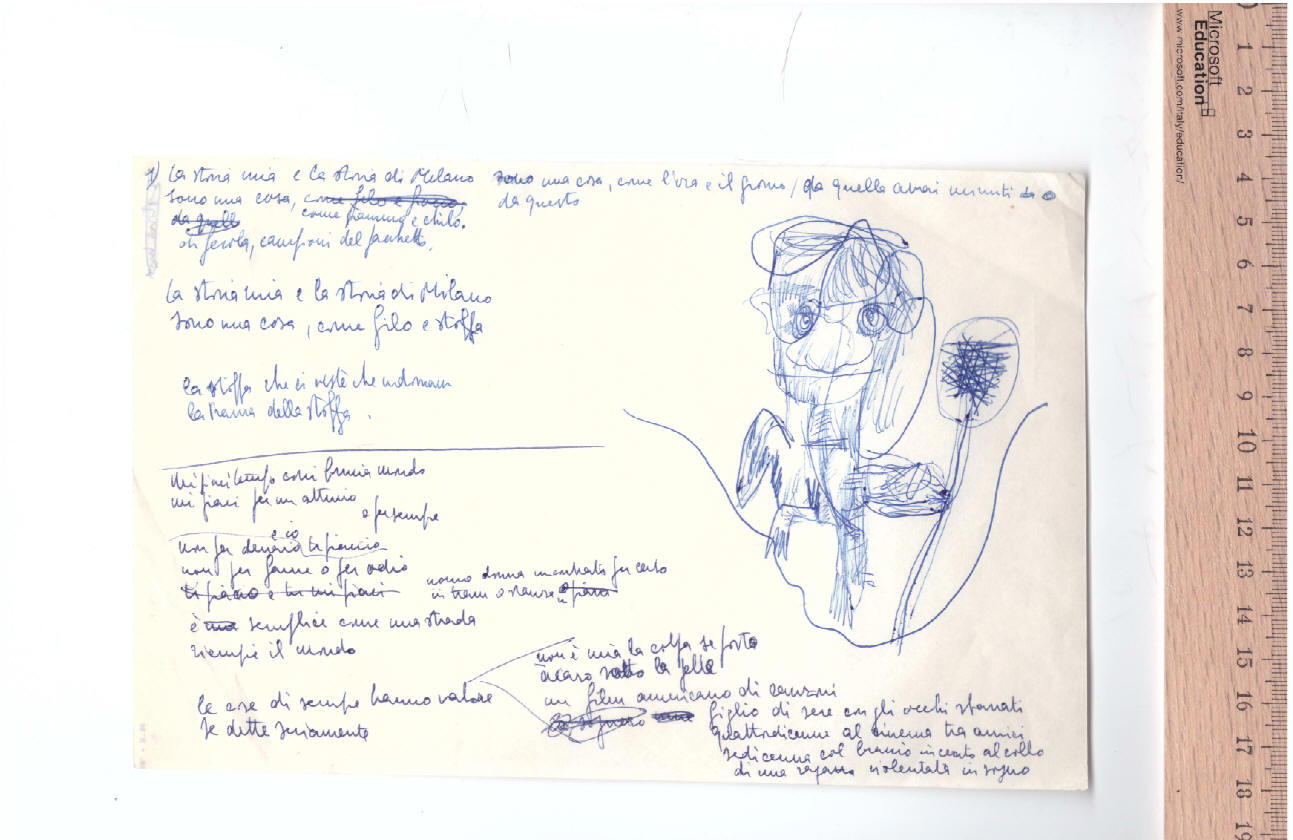 1) La storia mia e la storia di Milano
sono una cosa, come filo e
da quello come grammo e chilo.
di fecola, campioni del pacchetto,
sono una cosa, come l'ora e il giorno / da quella avrai minuti da
da questo
La storia mia e la storia di Milano
sono una cosa, come filo e stoffa
la stoffa che ci veste che indossiamo
la trama della stoffa.
mi piaci tempo così brucia mondo
mi piaci per un attimo
o per sempre
e io
non per denaro ti piaccio
non per fame o per odio
ti piaccio e tu mi piaci
uomo donna incontrato per certo
in tram o stanza o
è una semplice come una strada
riempie il mondo
le cose di sempre hanno valore
se dette seriamente
non è mia la colpa se porto
acaro sotto la pelle
un film americano di canzoni
figlio di sere con gli occhi sfornati
quattordicenne al cinema tra amici
sedicenne col braccio al collo
di una ragazza violentata in sogno
Microsoft
Education
www.microsoft.com/italy/education/
0 1 2 3 4 5 6 7 8 9 10 11 12 13 14 15 16 17 18 19